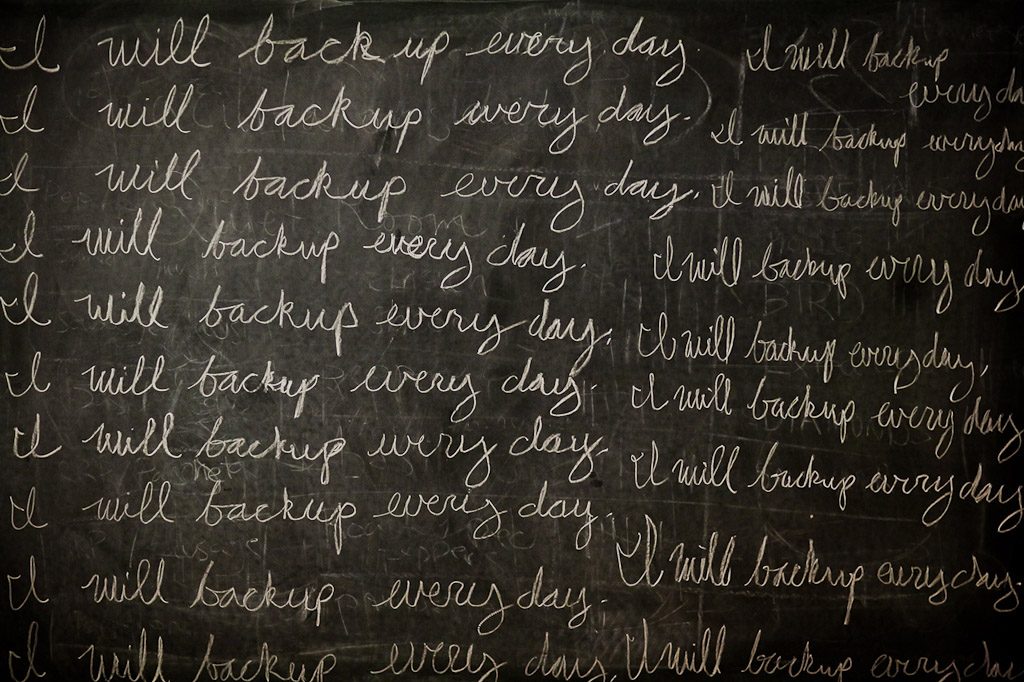 I will back up every day.
I will backup every day.
I will backup every day.
I will backup every day.
I will backup every day.
I will backup every day.
I will backup every day.
I will backup every day.
I will backup every day.
I will backup every day.
I will backup
every da
I will backup everyday
I will backup everyday
I will backup every day
I will backup everyday,
I will backup every day
I will backup every day
I will backup every day.
I will backup everyday